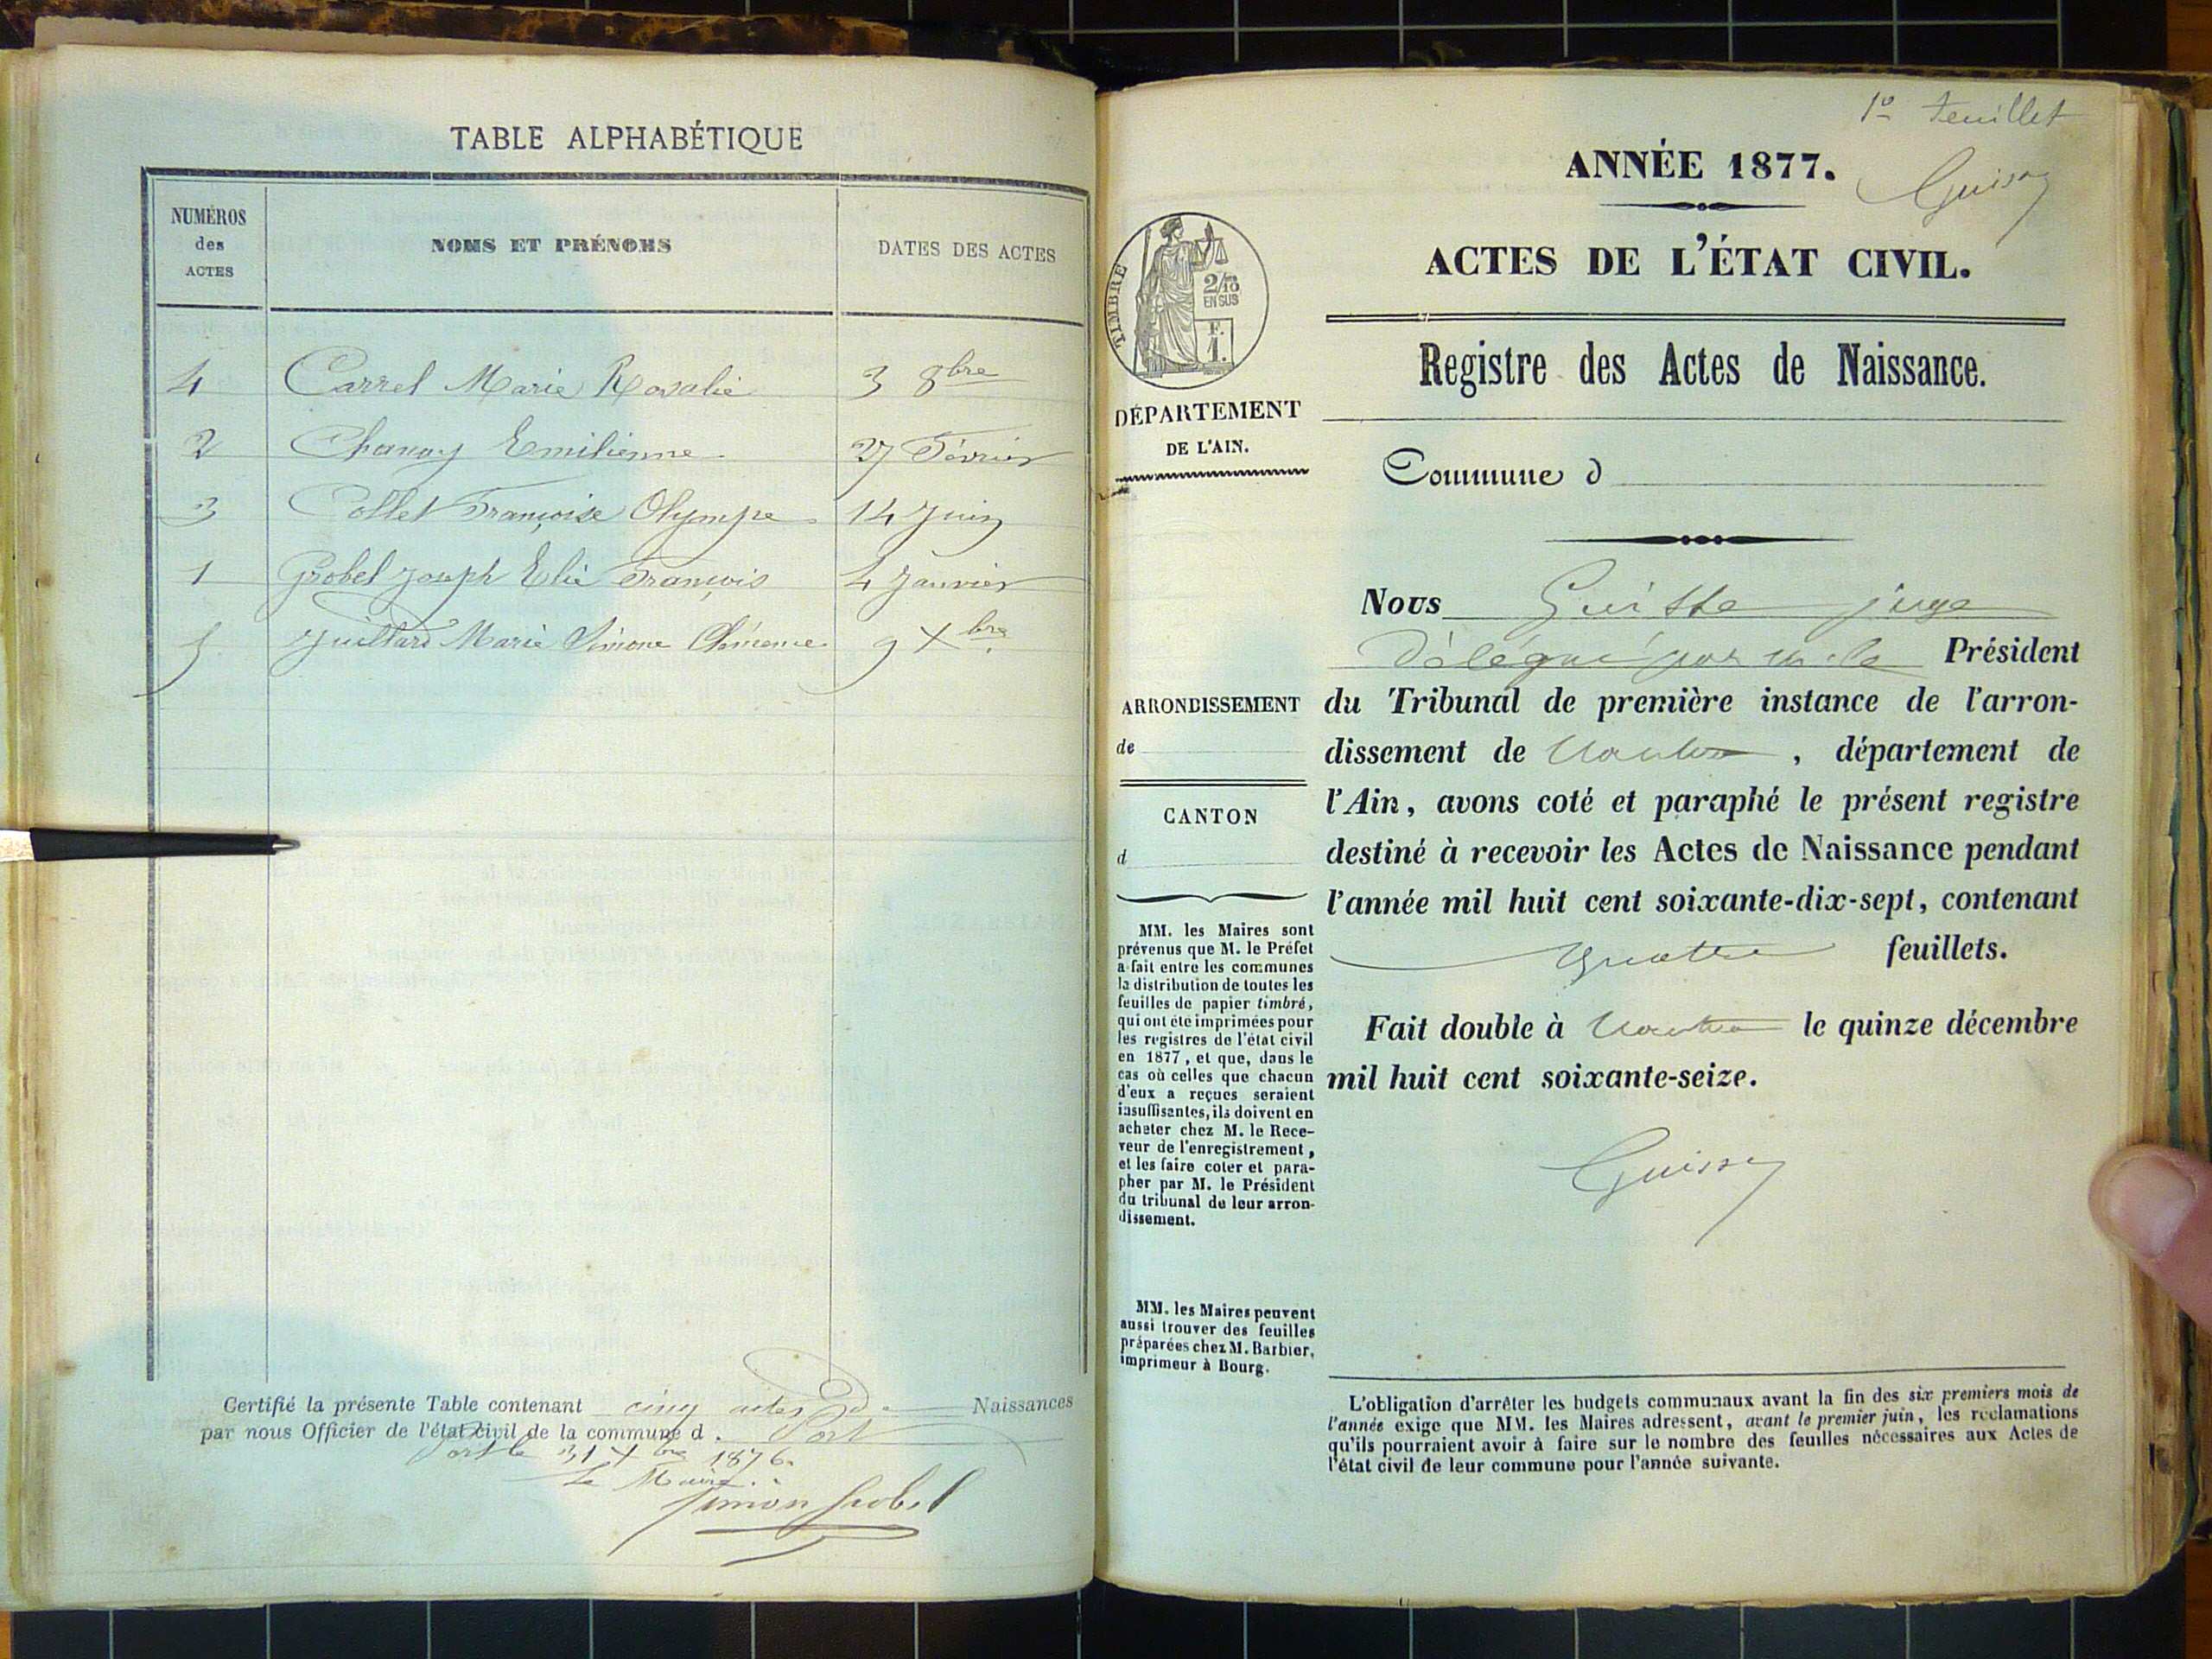 TABLE ALPHABÉTIQUE
NUMÉROS des ACTES
NOMS ET PRÉNOMS
DATES DES ACTES
4 Carrel Marie Rosalie 3 8bre
2 Chanay Emilienne 27 Février
3 Collet Françoise Olympe 14 Juin
1 Grobel Joseph Elie François 4 Janvier
5 Juillard Marie Simone Clémence 9 Xbre
Certifié la présente Table contenant cinq actes de Naissances
par nous Officier de l'état civil de la commune d. Port
Port le 31 Xbre 1876.
Le Maire
Simon Grobel
1er feuillet
ANNÉE 1877.
ACTES DE L'ÉTAT CIVIL.
Registre des Actes de Naissance.
Commune d
Nous juge
Délégué par M. le Président
du Tribunal de première instance de l'arron-
dissement de Nantua, département de
l'Ain, avons coté et paraphé le présent registre
destiné à recevoir les Actes de Naissance pendant
l'année mil huit cent soixante-dix-sept, contenant
quatre feuillets.
Fait double à Nantua le quinze décembre
mil huit cent soixante-seize.
TIMBRE
2/10
EN SUS
F.
1.
DÉPARTEMENT
DE L'AIN.
ARRONDISSEMENT
de
CANTON
d
MM. les Maires sont
prévenus que M. le Préfet
a fait entre les communes
la distribution de toutes les
feuilles de papier timbré,
qui ont été imprimées pour
les registres de l'état civil
en 1877, et que, dans le
cas où celles que chacun
d'eux a reçues seraient
insuffisantes, ils doivent en
acheter chez M. le Rece-
veur de l'enregistrement,
et les faire coter et para-
pher par M. le Président
du tribunal de leur arron-
dissement.
MM. les Maires peuvent
aussi trouver des feuilles
préparées chez M. Barbier,
imprimeur à Bourg.
L'obligation d'arrêter les budgets communaux avant la fin des six premiers mois de
l'année exige que MM. les Maires adressent, avant le premier juin, les réclamations
qu'ils pourraient avoir à faire sur le nombre des feuilles nécessaires aux Actes de
l'état civil de leur commune pour l'année suivante.